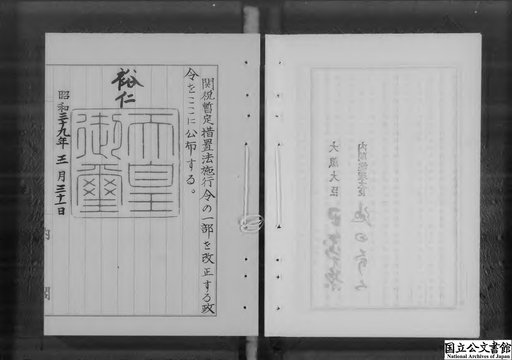 関税暫定措置法施行令の一部を改正する政
令をここに公布する。
裕仁
天皇
御璽
昭和三十九年三月三十一日
内閣
国立公文書館
National Archives of Japan